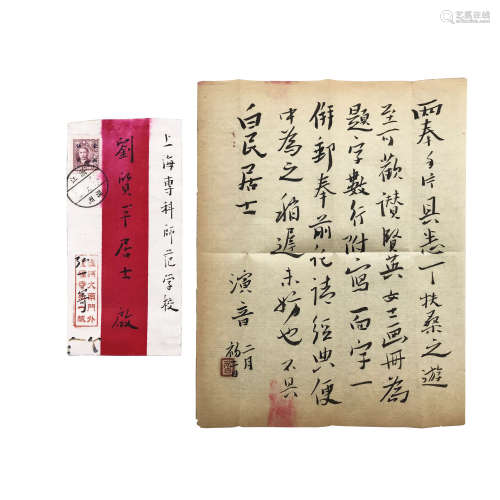 艺典中国
yidianchina.com
上海專科師范学校
劉質平居士 啟
兩奉手片具悉一一扶桑之遊
至可歡讚賢英女士画冊為
題字數行附寫 西字一
併郵奉前 請經典便
中為之稍遲未妨也不具
白民居士
演音
二月